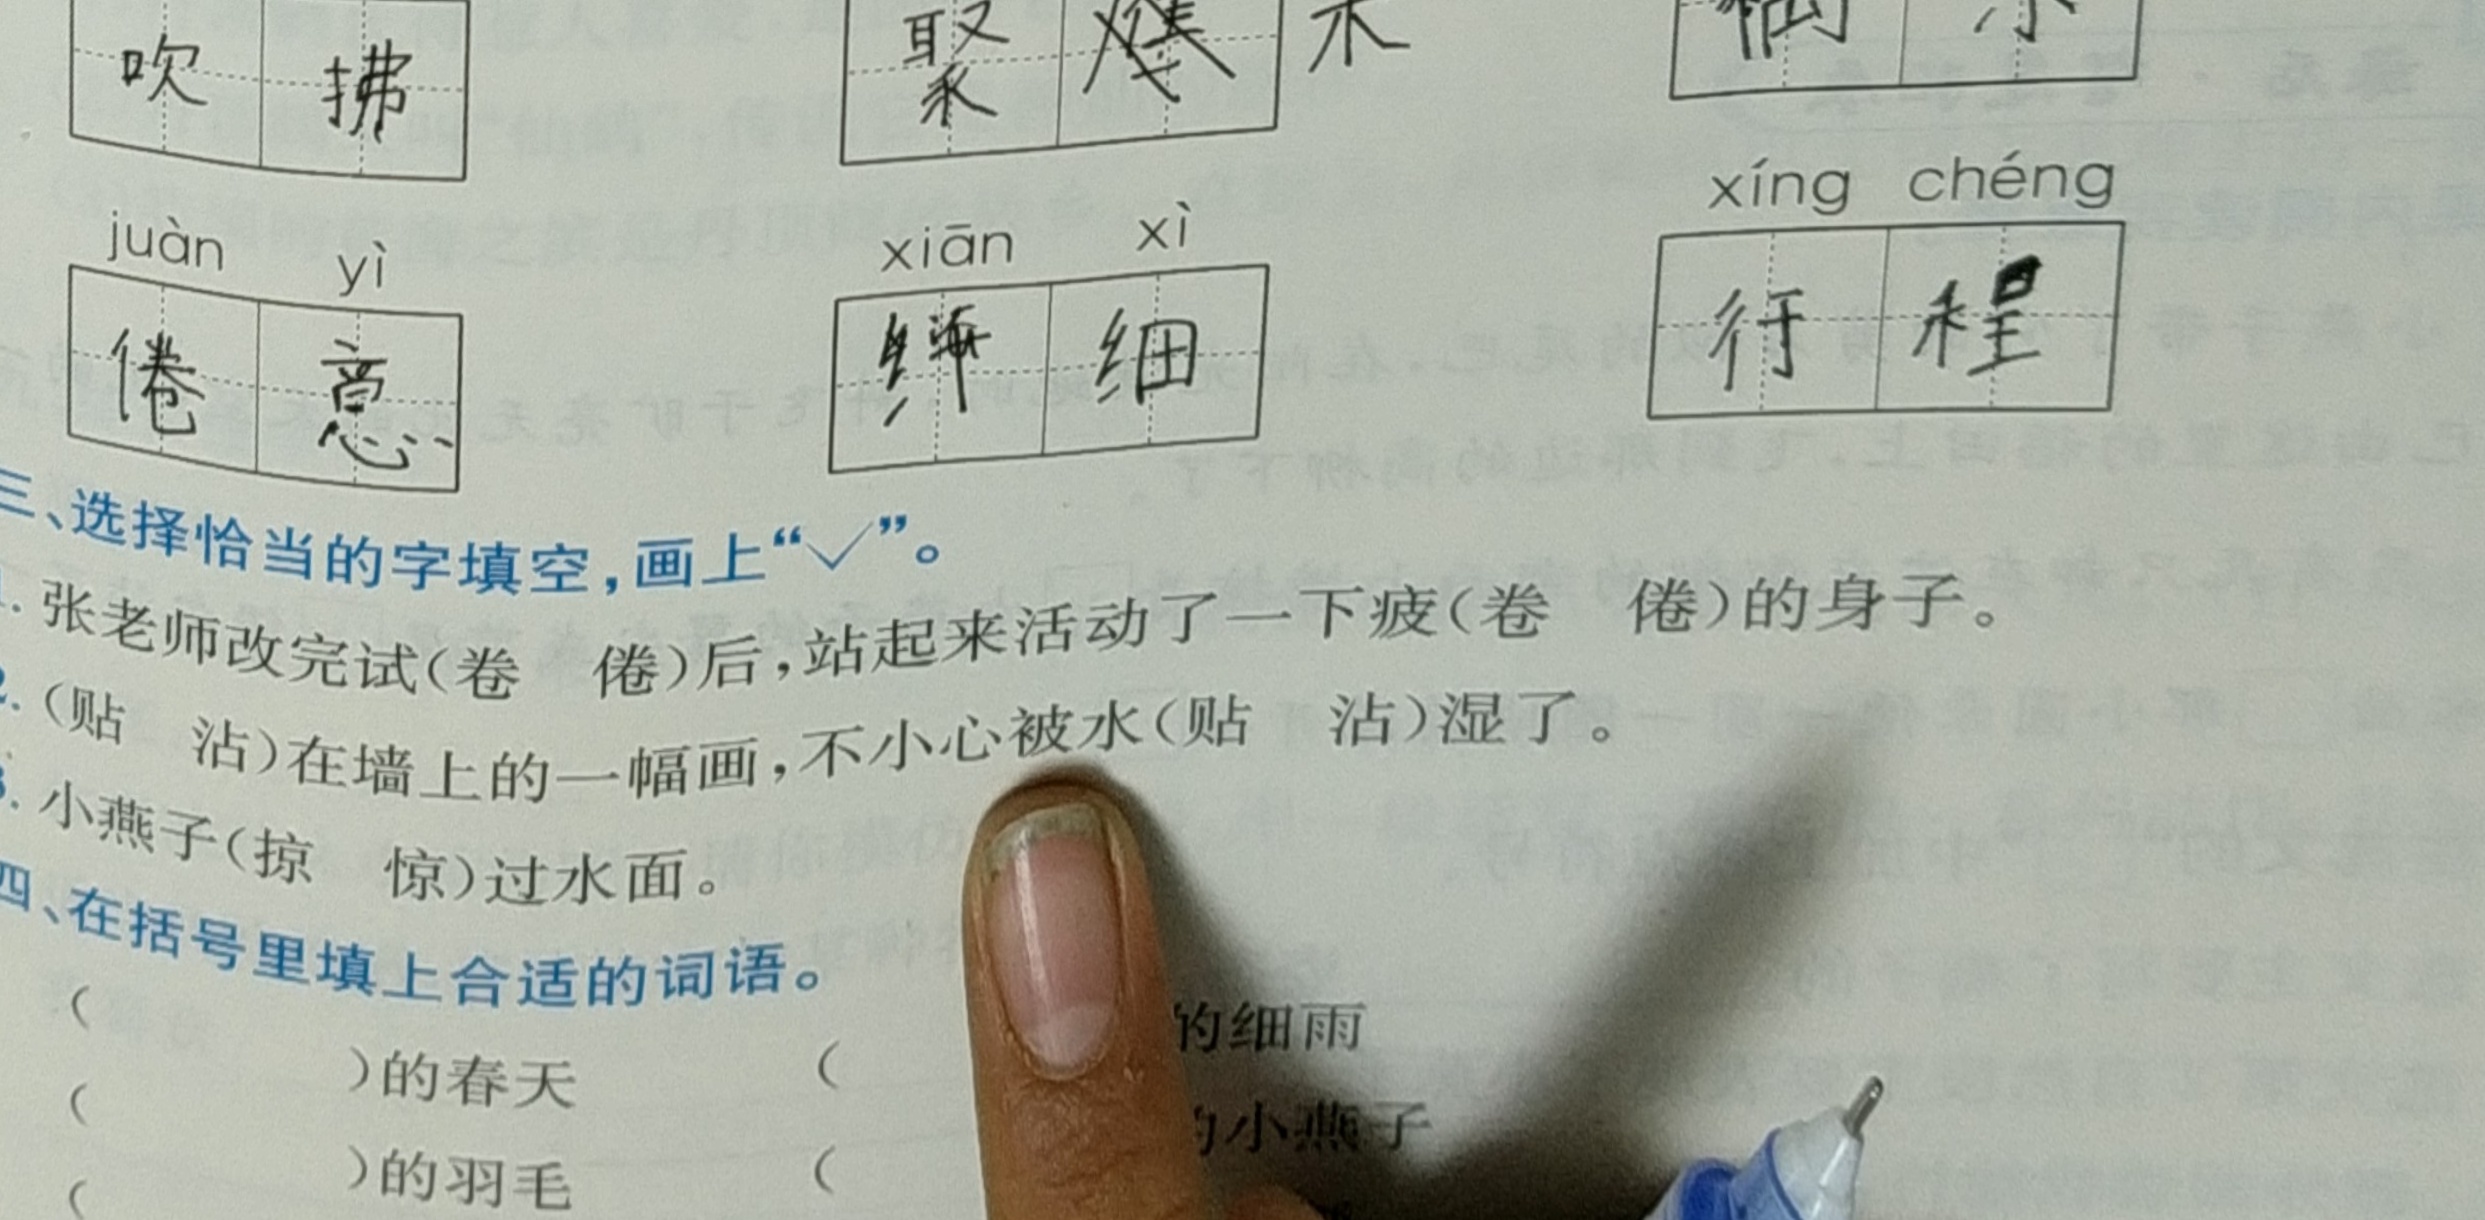 吹 拂 聚 木
xíng chéng
juàn yì xiān xì
倦 意 纤 细 行 程
三、选择恰当的字填空，画上“√”。
1. 张老师改完试(卷 倦)后，站起来活动了一下疲(卷 倦)的身子。
2. (贴 沾)在墙上的一幅画，不小心被水(贴 沾)湿了。
3. 小燕子(掠 惊)过水面。
四、在括号里填上合适的词语。
( )的春天 ( 的细雨
( )的羽毛 ( 小燕子
(